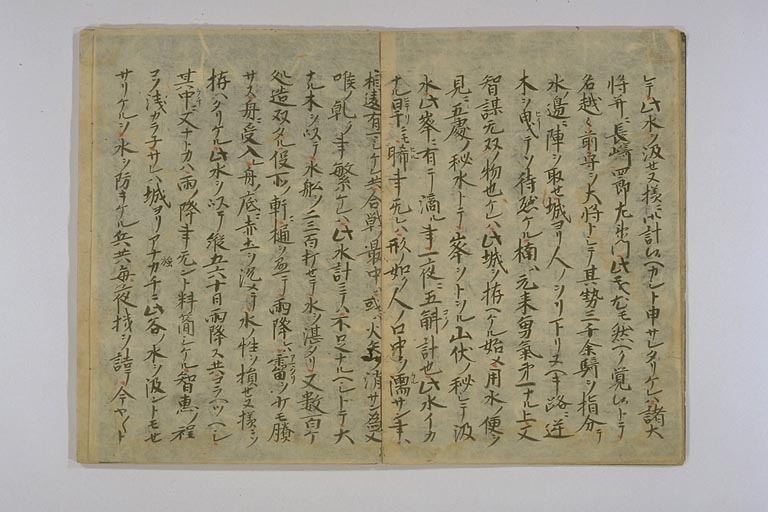 シテ此水ヲ汲セヌ様ニ御計候ヘカシト申サレタリケレハ諸大
将并ニ長崎四郎左衛門此義尤モ然ヘク覚候トテ
名越々前守ヲ大将トシテ其勢三千余騎ヲ指分テ
水ノ邊ニ陣ヲ取セ城ヨリ人ノシリ下リヌヘキ路ニ逆
木ヲ曳テソ待懸ケル楠ハ元来勇氣第一ナル上ヘ
智謀元双ノ物也ケレハ此城ヲ拵ヘケル始メ用水ノ便ヲ
見ニ五處ノ秘水トテ峯ヲトヲル山伏ノ秘シテ汲
水此峯ニ有テ滴ル事一夜ニ五斛計也此水イカ
ナル旱ニモ晞事元レハ形ノ如ク人ノ口中ヲ濡サン事ハ
相違有マシケレ共合戦最中ハ或ハ火矢ヲ消サン為又
喉ノ乾ク事繁ケレハ此水計ニテハ不足ナルヘシトテ大
ナル木ヲ以テ水舩ヲ二三百打セテ水ヲ湛タリ又数百ケ
処造双タル役所ノ軒ニ樋ヲ并テ雨降レハ霤ヲ少モ賸
サス舟ニ受入レ舟ノ底ニ赤土ヲ沈メテ水ノ性ヲ損セヌ様ニソ
拵ヘタリケル此水ヲ以テ縦五六十日雨降ス共コラヘツヘシ
其中ニ又ナトカハ雨ノ降事元ント料簡シケル智恵ノ程
コソ浅カラナサレハ城ヨリアナカチニ此谷ノ水ヲ汲ントモセ
サリケルヲ水ヲ防キケル兵共毎夜機ヲ詰テ今ヤ〱ト